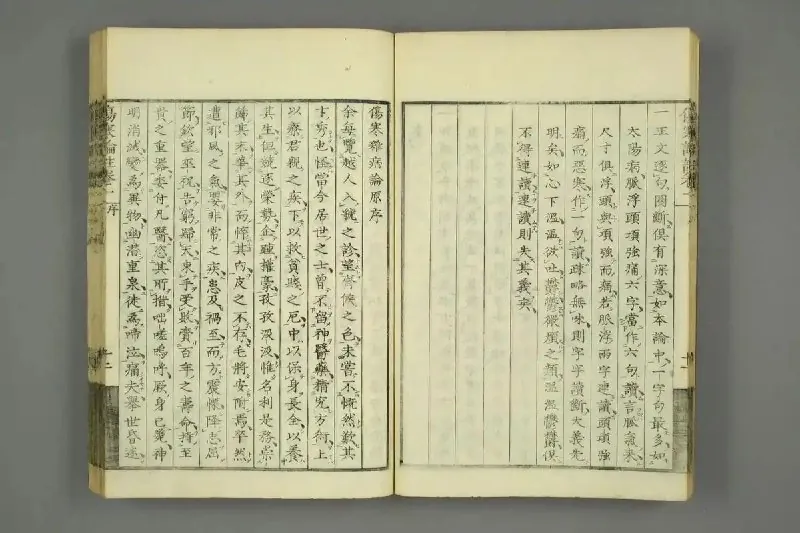 一正文逐句圈斷俱有深意如本論中一字句最多如
太陽病脈浮頭項強痛六字當作六句讀言脈氣來
尺寸俱浮頭與項強而痛若脈浮兩字連讀頭項強
痛而惡寒作一句讀踈略無味則字字讀斷大義先
明矣如心下溫溫欲吐鬱鬱微煩之類溫溫鬱鬱俱
不得連讀連讀則失其義矣
傷寒雜病論原序
余每覽越人入虢之診望齊侯之色未嘗不慨然歎其
才秀也怪當今居世之士曾不留神醫藥精究方術上
以療君親之疾下以救貧賤之厄中以保身長全以養
其生但競逐榮勢企踵權豪孜孜汲汲惟名利是務崇
飾其末華其外而悴其內皮之不存毛將安附焉卒然
遭邪風之氣嬰非常之疾患及禍至而方震慄降志屈
節欽望巫祝告窮歸天束手受敗賫百年之壽命持至
貴之重器委付凡醫恣其所措咄嗟嗚呼厥身已斃神
明消滅變爲異物幽潛重泉徒爲啼泣痛夫舉世昏迷
傷寒論註卷一 序